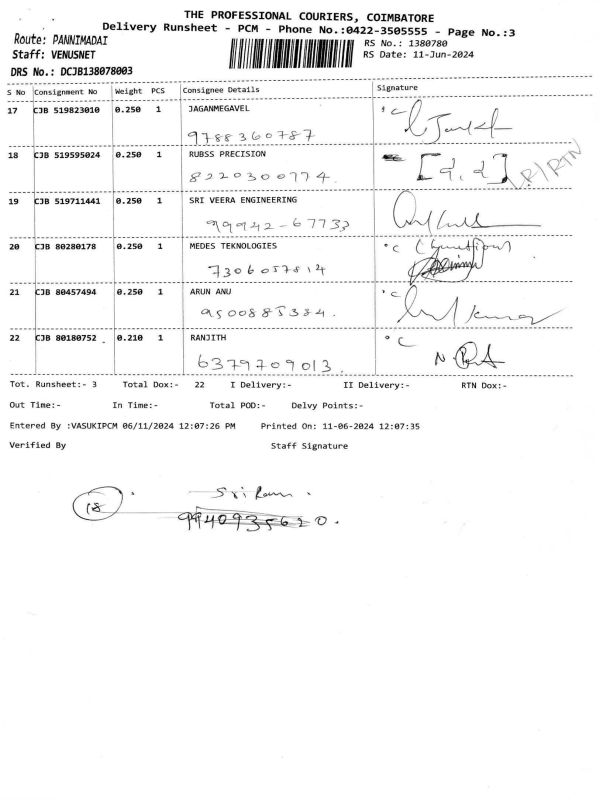 THE PROFESSIONAL COURIERS, COIMBATORE
Delivery Runsheet - PCM - Phone No.:0422-3505555 - Page No.:3
Route: PANNIMADAI
RS No.: 1380780
Staff: VENUSNET
RS Date: 11-Jun-2024
DRS No.: DCJB138078003
S No Consignment No Weight PCS Consignee Details Signature
17 CJB 519823010 0.250 1 JAGANMEGAVEL
9788360787
18 CJB 519595024 0.250 1 RUBSS PRECISION
8220300774.
19 CJB 519711441 0.250 1 SRI VEERA ENGINEERING
99942-67733
20 CJB 80280178 0.250 1 MEDES TEKNOLOGIES
7306057814
21 CJB 80457494 0.250 1 ARUN ANU
9500885384.
22 CJB 80180752 0.210 1 RANJITH
6379709013.
Tot. Runsheet:- 3 Total Dox:- 22 I Delivery:- II Delivery:- RTN Dox:-
Out Time:- In Time:- Total POD:- Delvy Points:-
Entered By :VASUKIPCM 06/11/2024 12:07:26 PM Printed On: 11-06-2024 12:07:35
Verified By Staff Signature
18 Sri Ram.
9940935620.